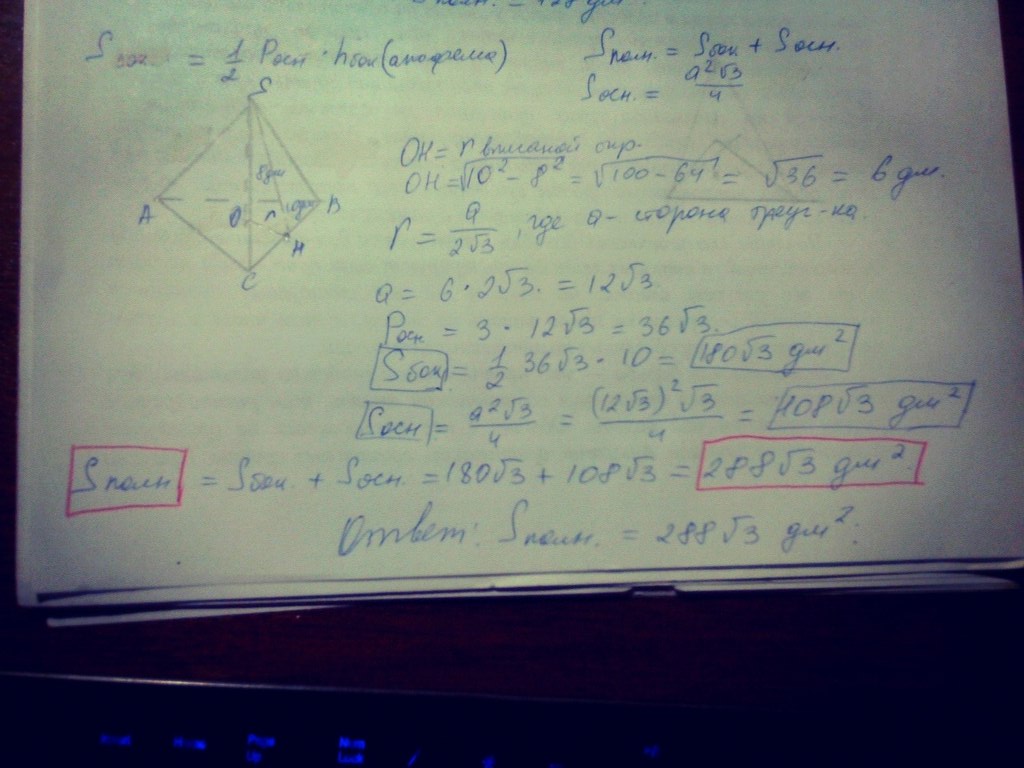 Sполн. = 128 дм².
Sбок. = 1/2 Pосн · hбок(апофема)
Sполн. = Sбок + Sосн.
Sосн. = a²√3/4
S
8дм
A
O
r
10дм
B
H
C
OH = r вписаной окр.
OH = √10² - 8² = √100 - 64 = √36 = 6 дм.
r = a/2√3, где a - сторона треуг-ка.
a = 6 · 2√3. = 12√3
Pосн. = 3 · 12√3 = 36√3.
Sбок = 1/2 36√3 · 10 = 180√3 дм²
Sосн = a²√3/4 = (12√3)²√3/4 = 108√3 дм²
Sполн = Sбок. + Sосн. = 180√3 + 108√3 = 288√3 дм²
Ответ: Sполн. = 288√3 дм².
Home
Page Up
Num Lock
/